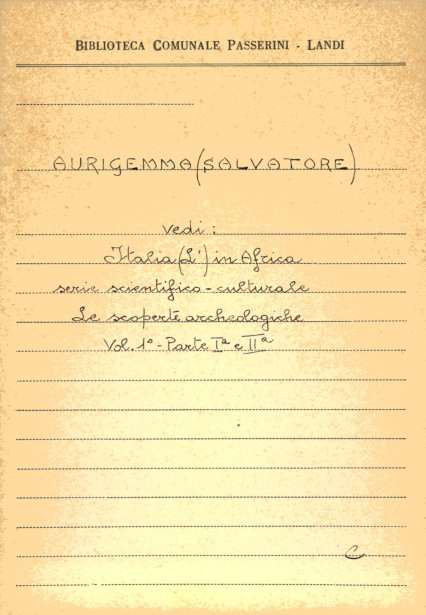 BIBLIOTECA COMUNALE PASSERINI - LANDI
AURIGEMMA (SALVATORE)
vedi:
Italia (L') in Africa
serie scientifico-culturale
Le scoperte archeologiche
Vol. 1º - Parte Iª e IIª
C